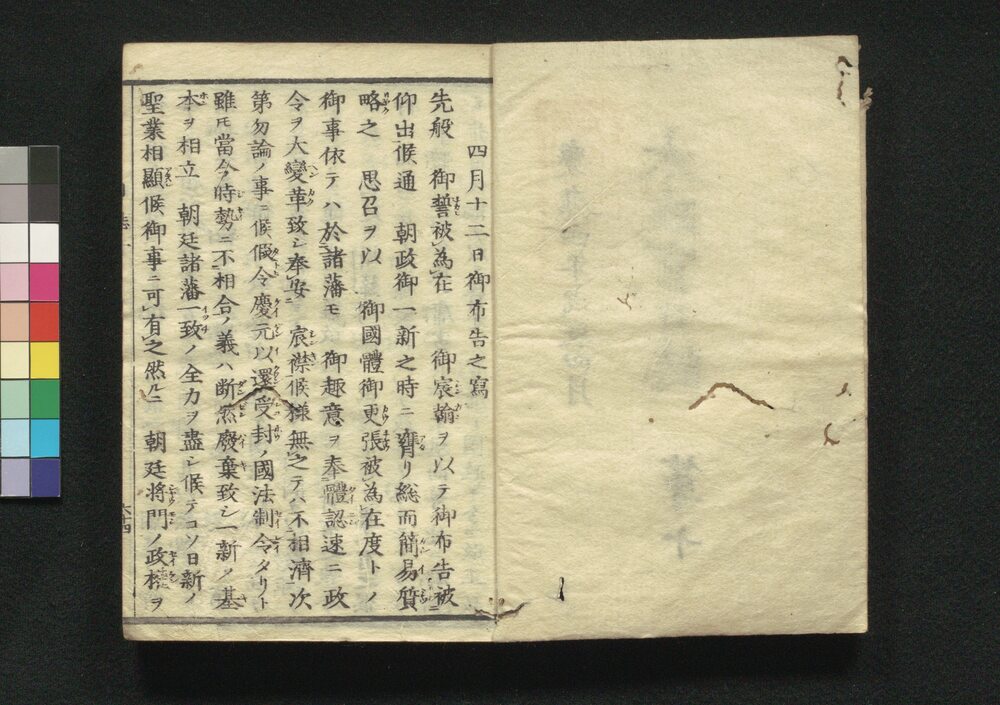 四月十二日御布告之寫
先般 御誓被為在 御宸翰ヲ以テ御布告被
仰出候通 朝政御一新之時ニ膺リ総而簡易質
略之 思召ヲ以 御國體御更張被為在度トノ
御事依テハ於諸藩モ 御趣意ヲ奉體認速ニ政
令ヲ大變革致シ奉安 宸襟候様無之テハ不相濟次
第勿論ノ事ニ候假令慶元以還受封ノ國法制令タリト
雖モ當今ノ時勢ニ不相合ノ義ハ断然廢棄致シ一新ノ基
本ヲ相立 朝廷諸藩一致ノ全力ヲ盡シ候テコソ日新ノ
聖業相顯候御事ニ可有之然ルニ 朝廷将門ノ政権ヲ